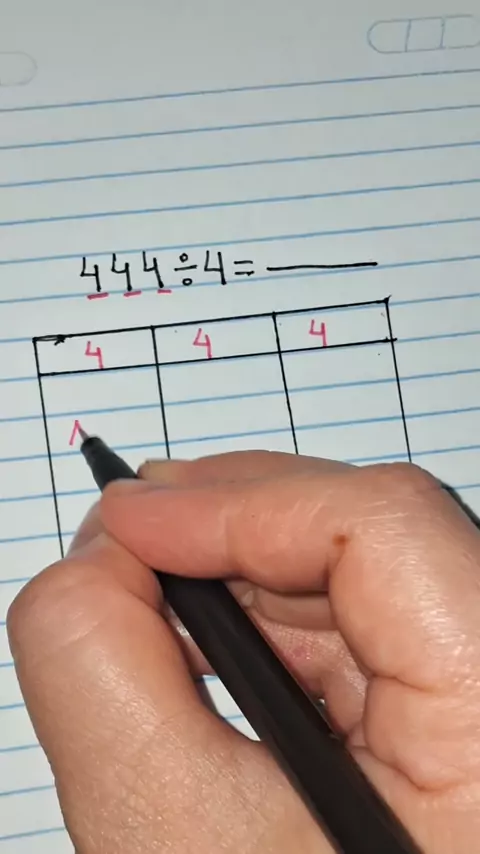 444÷4=
4 4 4
1